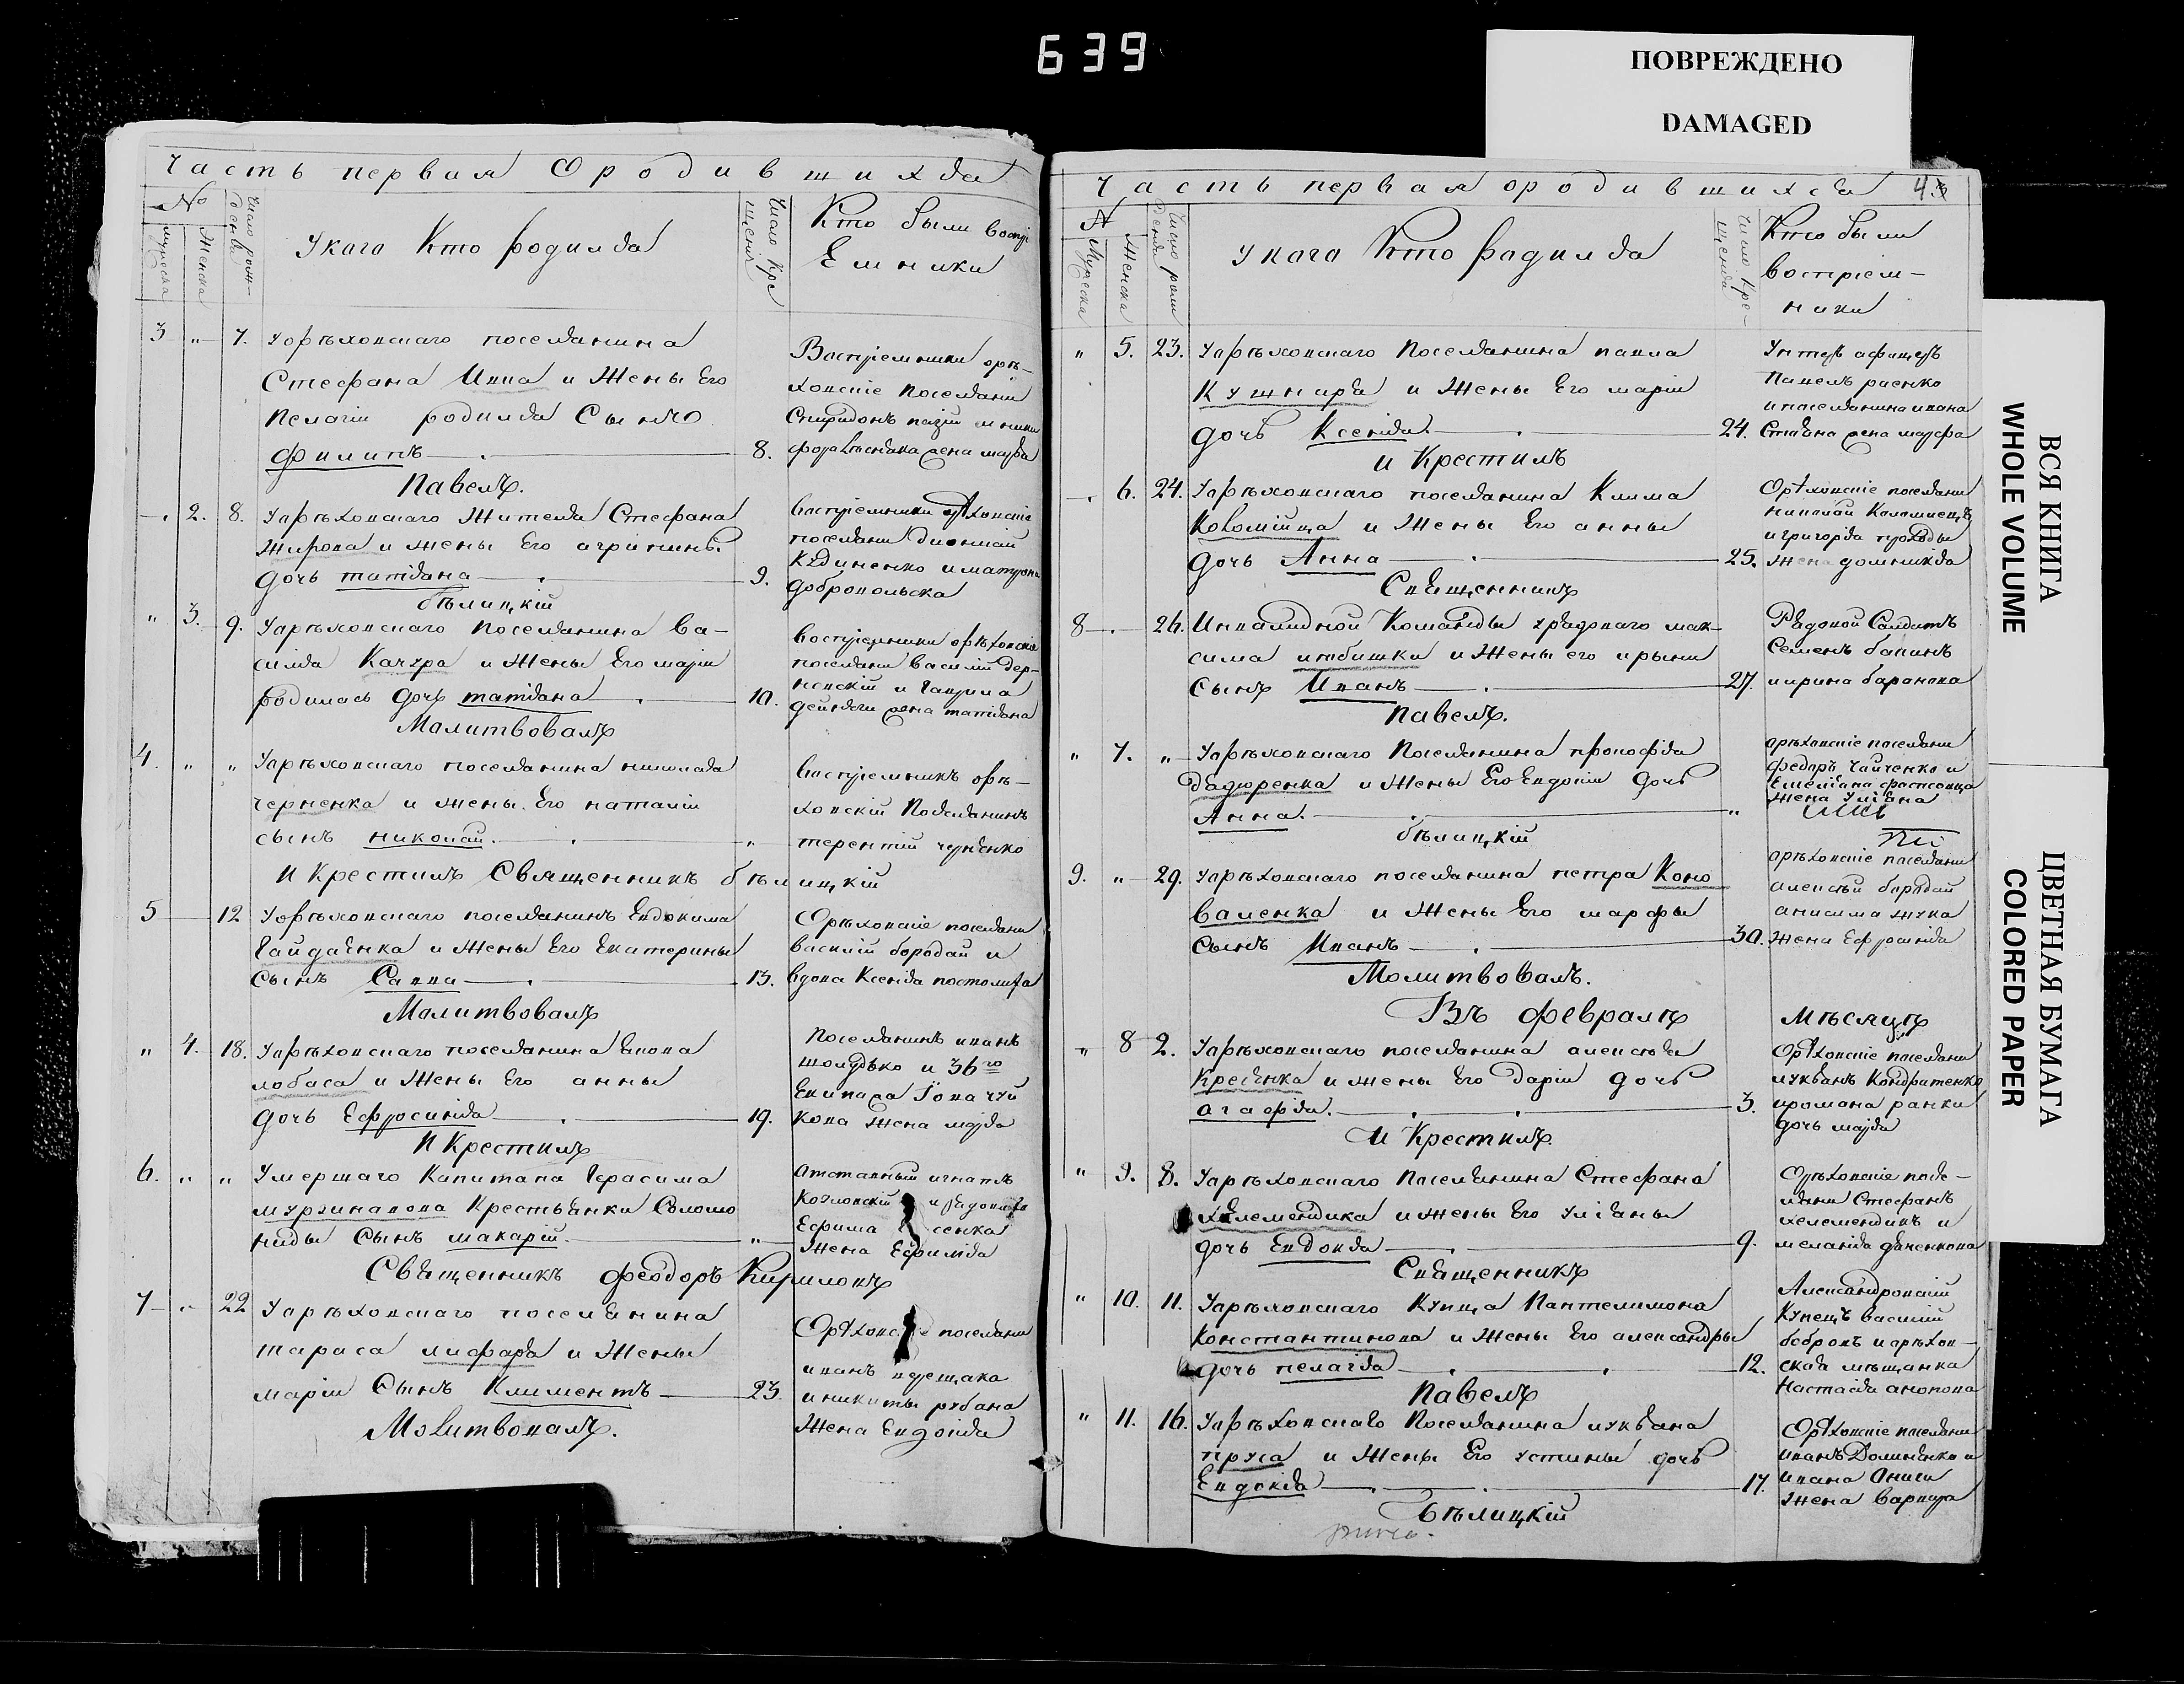 639
ПОВРЕЖДЕНО
DAMAGED
Часть первая О родившихся
№
Мужеска
Женска
Число рож-
дения
Укаго Кто родился
Число Кре
щения
Кто были воспри
Емники
3 " 7. Уорѣховскаго поселянина
Стефана Ивна и Жены Его
Пелагіи родился Сынъ
Филипъ 8.
Воспріемники орѣ-
ховскіе Поселяни
Спиридонъ
жена марѳа
Павелъ.
2. 8. Уорѣховскаго Жителя Стефана
Жирова и жены Его агрипины
дочь татіяна 9.
воспріемники орѣховскіе
поселяни Дионисій
Кудиненко и матрона
добропольска
бѣлицкій
" 3. 9. Уорѣховскаго Поселянина Ва-
силія Качура и Жены Его маріи
родилась дочь татіяна 10.
воспріемники орѣховскіе
поселяни василій дер-
невскій и Гаврила
жена татіяна
Молитвовалъ
4. " " Уорѣховскаго поселянина николая
черненка и жены Его наталіи
сынъ николай. "
воспріемникъ орѣ-
ховскій Поселянинъ
терентій черненко
И Крестилъ Священникъ бѣлицкій
5 12 Уорѣховскаго поселянинъ Евдокима
Гайдаенка и Жены Его Екатерины
Сынъ Савва 13.
Орѣховскіе поселяни
василій бородай и
вдова Ксенія
Молитвовалъ
" 4. 18. Уорѣховскаго поселянина якова
лобаса и Жены Его анны
дочь Ефросинія 19.
Поселянинъ иванъ
шолудько и 36го
Екипажа
Жена марія
И Крестилъ
6. " " Умершаго Капитана Герасима
мурзинакова Крестьянки Соломо
ниды Сынъ макарій. "
Отставный игнатъ
Козловскій и рядоваго
Ефима
Жена Ефимія
Священникъ Феодоръ Кириловъ
7 22 Уорѣховскаго поселянина
тараса лифаря и Жены
маріи Сынъ Климентъ 23.
Орѣховскіе поселяни
иванъ верещака
и никиты рубана
Жена Евдокія
Молитвовалъ.
Часть первая о родившихся 43
№
Мужеска
Женска
Число рож
дения
Укаго Кто родился
Число Кре-
щения
Кто были
воспріем-
ники
" 5. 23. Уорѣховскаго Поселянина павла
Кушнира и Жены Его маріи
дочь Ксенія. 24.
Унтеръ афицеръ
Павелъ раенко
и поселянина ивана
жена марфа
И Крестилъ
6. 24. Уорѣховскаго поселянина Клима
Коломійца и Жены Его анны
дочь Анна 25.
Орѣховскіе поселяни
николай Коломиецъ
и григорія проходы
жена домникія
Священникъ
8 26. Инвалидной Команды рядоваго мак-
сима и Жены его ирыни
Сынъ Иванъ 27.
Рядовой Салдатъ
Семенъ бабинъ
и ирина баранова
Павелъ.
" 7. " Уорѣховскаго Поселянина прокофія
Дядюренка и Жены Его Евдокіи дочь
Анна. "
орѣховскіе поселяни
федоръ Чайченко и
Емеліана
жена Уліяна
бѣлицкій
9. " 29. Уорѣховскаго поселянина петра Коно
валенка и Жены Его марфы
Сынъ Иванъ 30.
орѣховскіе поселяни
алексѣй бородай
анисима жука
жена Ефросинія
Молитвовалъ.
Въ февралѣ мѣсяцѣ
" 8 2. Уорѣховскаго поселянина алексѣя
Кресенка и жены Его Даріи дочь
агафія. 3.
Орѣховскіе поселяни
лукьянъ Кондратенко
и романа
дочь марія
И Крестилъ.
" 9. 8. Уорѣховскаго Поселянина Стефана
Хелемендика и жены Его Уліаны
дочь Евдокія 9.
Орѣховскіе посе-
ляни Стефанъ
хелемендикъ и
меланія дяченкова
Священникъ
" 10. 11. Уорѣховскаго Купца Пантелимона
Константинова и Жены Его александры
дочь пелагія 12.
Александровскій
Купецъ василій
бобровъ и орѣхов-
ская мѣщанка
Настасія
Павелъ
" 11. 16. Уорѣховскаго Поселянина лукьяна
пруса и Жены Его устины дочь
Евдокія 17.
Орѣховскіе поселяни
иванъ Долиненко и
ивана
жена варвара
Бѣлицкій
ВСЯ КНИГА
WHOLE VOLUME
ЦВЕТНАЯ БУМАГА
COLORED PAPER